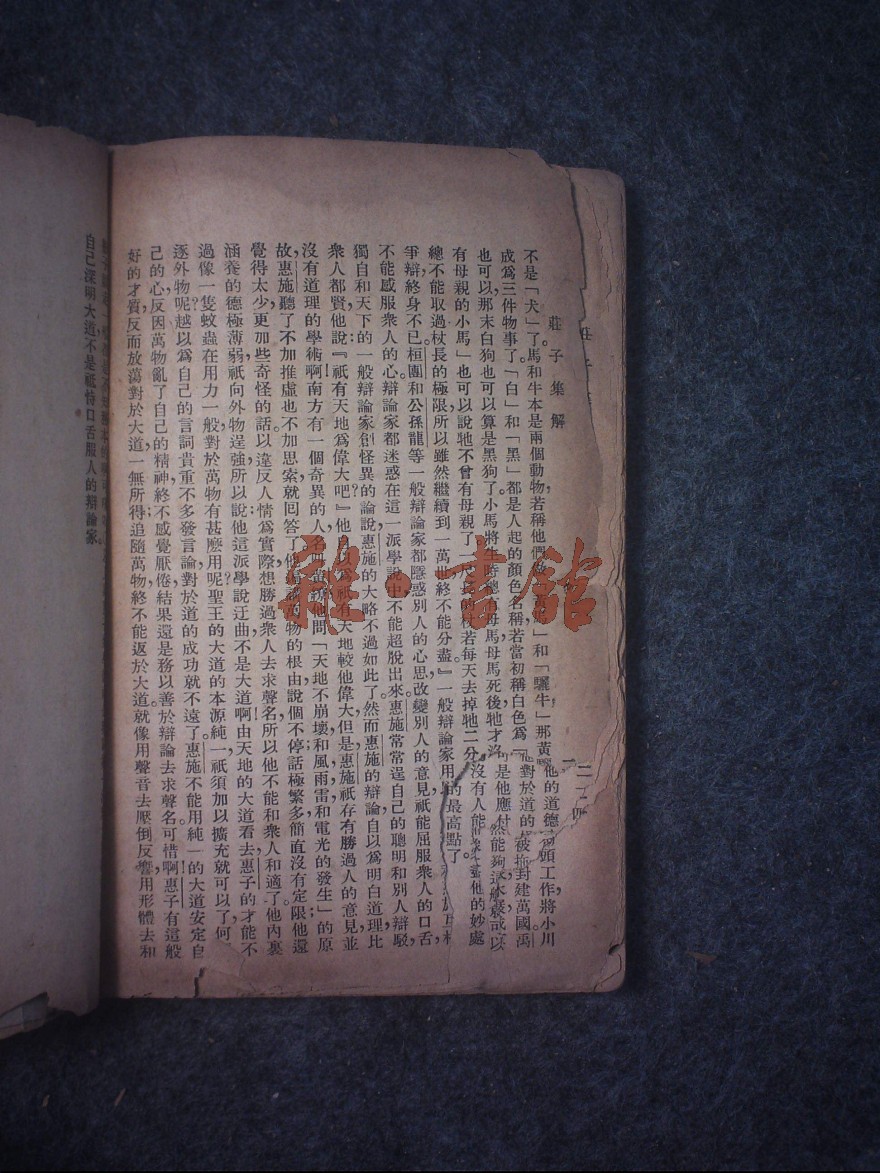 莊子集解
不是「犬」了。馬和牛本是兩個動物，若稱他們做「黃馬」和「驪牛」那黃驪
成爲三件物事了。「白」和「黑」都是人起的顏色名稱若當初稱白色爲「
也可以，那末白狗也可以算是黑狗了。小馬將生時總有母馬母馬死後牠才沒
有母親的小馬」也可以說牠不曾有母親了。尺長的杖若每天去掉牠二分
總不能取過杖長的極限，所以雖然繼續到一萬世終不能分盡』一般辯論家用
爭辯，終身不已。桓團和公孫龍等一般辯論家都隱惑別人的心思，改變別人的意見，祇能屈服衆人的口舌，
不能感服衆人的心。辯論家都迷惑在這一派學說中不能超脫出來。惠施常常逞自己的聰明和別人辯駁，
獨自和天下的一般辯論家創怪異的論說，惠施的大略不過如此了。然而惠施的辯論自以爲明白道理比
衆人都賢，他說：『祇有天地爲偉大吧！』他以爲祇有天地較他偉大。但是惠施祇存有勝過人的意見，並
沒有道理的學術啊！南方有一個奇異的人，名叫黃繚，他問「天地不崩壞，和風雨雷和電光的發生」的原
故，惠施聽了不加推虛也不加思索，就回答了他，徧論萬物的根由，說個不停，話極繁多，簡直沒有定限。他還
覺得太少，更加些奇怪的話。以違反人情爲實際，想勝過衆人去求聲名，所以他不能和衆人和適了。他內裏
涵養的德極薄弱，祇向外物逞強，所以說他這派學說迂曲不是大道啊！由天地的大道看去惠子的才能，不
過像一隻蚊蟲在用力一般，對於萬物有甚麽用呢？聖王的大道的本源純一，祇須加以擴充就可以了，何
逐外物呢？越以爲自己的言詞貴重，不多發言論，對於道的成功就不遠了。惠施不能用純一的大道安定自
己的心，反因萬物亂了自己的精神，終不感覺厭倦，結果還是務以善於辯論去求聲名。可惜啊！惠子有這般
好的才質，反而放蕩，對於大道一無所得；追隨萬物，終不能返於大道。就像用聲音去壓倒反響，用形體去和
他的道德
頭工作，將小川
對於道的
封建萬國，禹
是他應付
然能夠
沒有人能
他的妙處
的最高點了。
自己深明大道不是祇恃口舌服人的辯論家
雜·書館